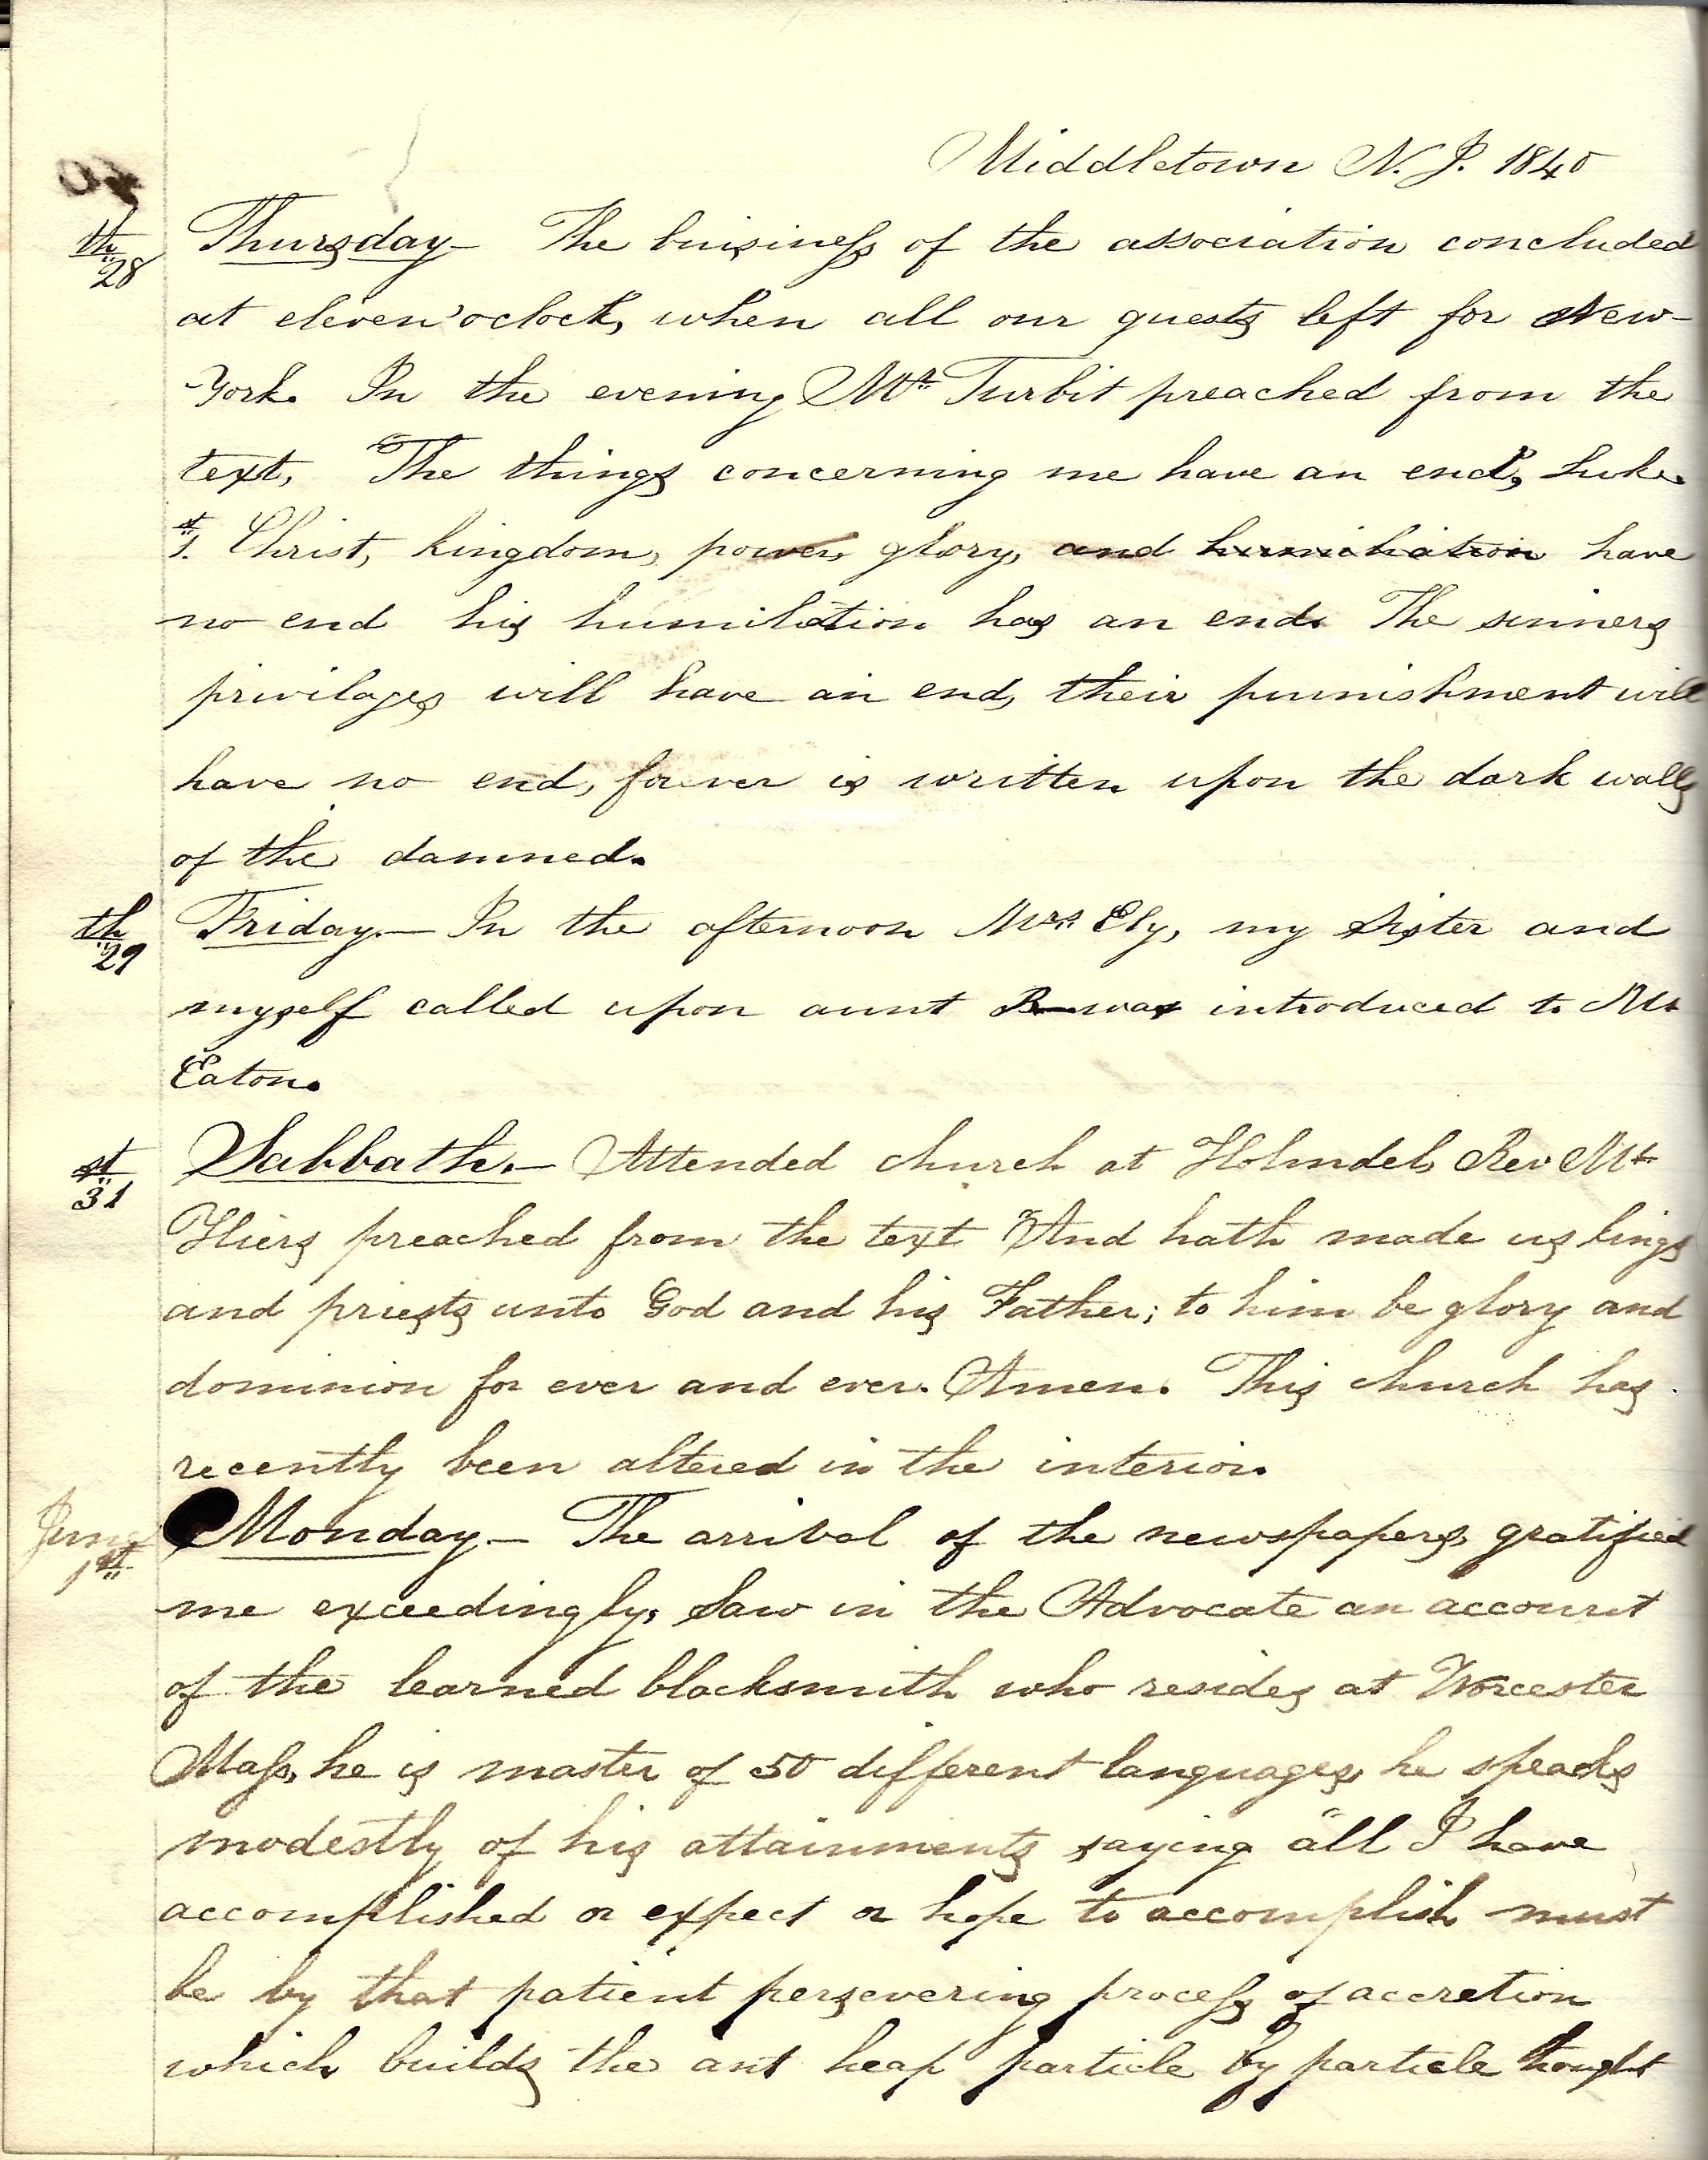 Middletown N. J. 1840
th 28 Thursday— The buisiness of the association concluded
at eleven'oclock, when all our guests left for New-
York. In the evening Mr Turbit preached from the
text, "The things concerning me have an end", Luke.
1.st Christ, kingdom, power, glory, and humiliation have
no end his humilation has an end. The sinners
privilages will have an end, their punishment will
have no end, forever is written upon the dark walls
of the damned.
th 29 Friday.— In the afternoon Mrs Ely, my sister and
myself called upon aunt B— was introduced to Mr
Eaton.
st 31 Sabbath.— Attended church at Holmdel, Rev Mr
Hiers preached from the text "And hath made us kings
and priests unto God and his Father; to him be glory and
dominion for ever and ever. Amen. This church has
recently been altered in the interior.
June 1st Monday.— The arrival of the newspapers, gratified
me exceedingly, Saw in the Advocate an account
of the learned blacksmith who resides at Worcester
Mass, he is master of 50 different languages, he speaks
modestly of his attainments saying "all I have
accomplished or expect or hope to accomplish must
be by that patient persevering process of accretion
which builds the ant heap particle by particle thought